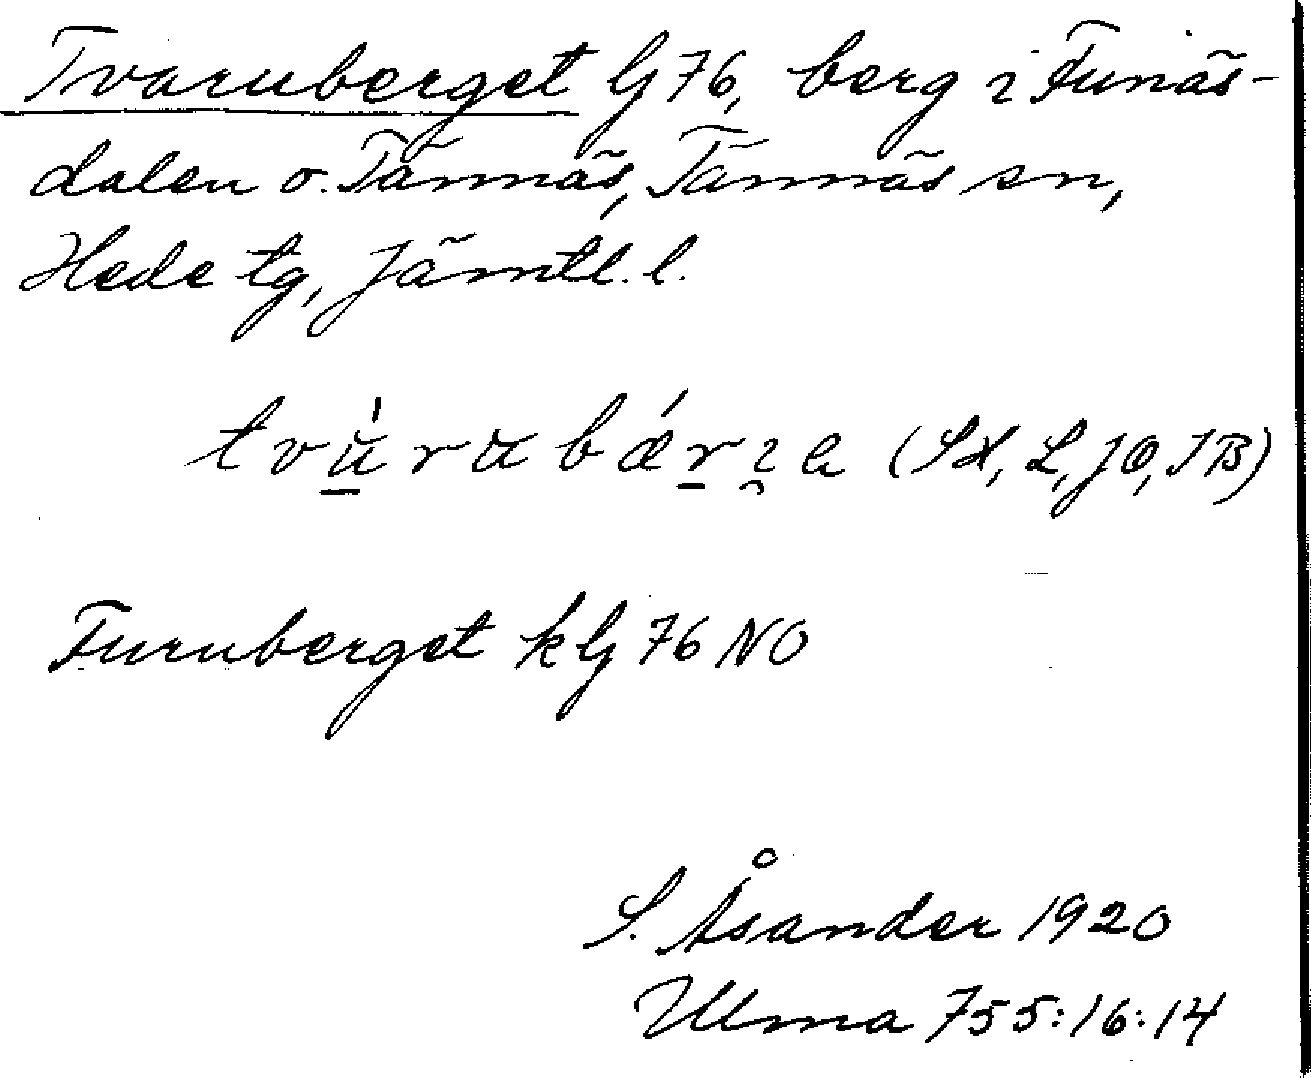 Tvaruberget G 76, berg i Funäs-
dalen o. Tännäs, Tännäs sn,
Hede tg, Jämtl. l.
tvùrubárza (SH, L, JO, IB)
Furuberget k G 76 NO
S. Åsander 1920
Ulma 755:16:14